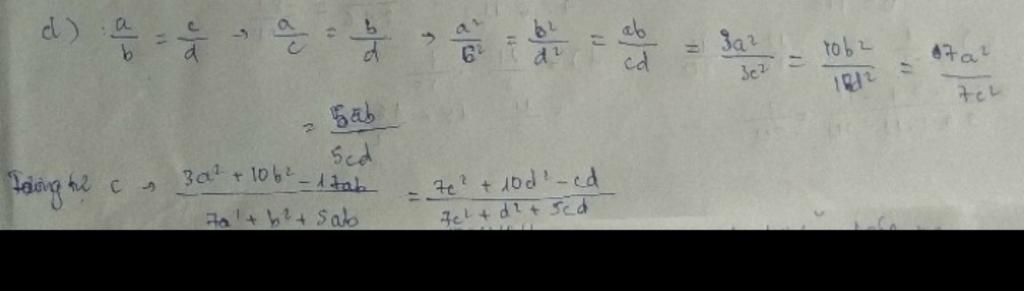 d) : a/b = c/d → a/c = b/d → a²/6² = b²/d² = ab/cd = 3a²/3c² = 10b²/10d² = 7a²/7c²
= 5ab/5cd
c → (3a² + 10b² = 17ab)/(7a² + b² + 5ab) = (7c² + 10d² - cd)/(7c² + d² + 5cd)